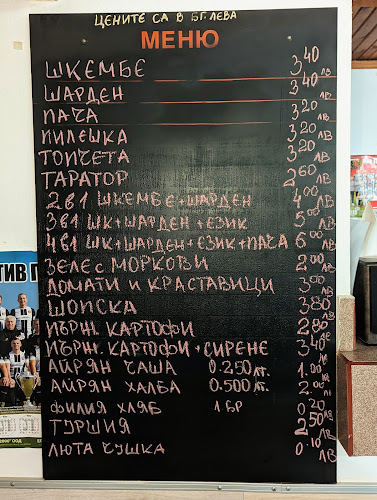 ЦЕНИТЕ СА В БГ. ЛЕВА
МЕНЮ
ШКЕМБЕ 3 40 ЛВ
ШАРДЕН 3 40 ЛВ
ПАЧА 3 20 ЛВ
ПИЛЕШКА 3 20 ЛВ
ТОПЧЕТА 3 20 ЛВ
ТАРАТОР 2 60 ЛВ
2 В 1 ШКЕМБЕ+ШАРДЕН 4 00 ЛВ
3 В 1 ШК+ШАРДЕН+ЕЗИК 5 00 ЛВ
4 В 1 ШК+ШАРДЕН+ЕЗИК+ПАЧА 6 00 ЛВ
ЗЕЛЕ С МОРКОВИ 2 00 ЛВ
ДОМАТИ И КРАСТАВИЦИ 3 00 ЛВ
ШОПСКА 3 80 ЛВ
ПЪРЖ. КАРТОФИ 2 80 ЛВ
ПЪРЖ. КАРТОФИ+СИРЕНЕ 3 40 ЛВ
АЙРЯН ЧАША 0.250 КГ. 1.00 ЛВ
АЙРЯН ХАЛБА 0.500 КГ. 2.00 ЛВ
ФИЛИЯ ХЛЯБ 1 БР 0 20 ЛВ
ТУРШИЯ 2 50 ЛВ
ЛЮТА ЧУШКА 0 10 ЛВ
ТИВ П